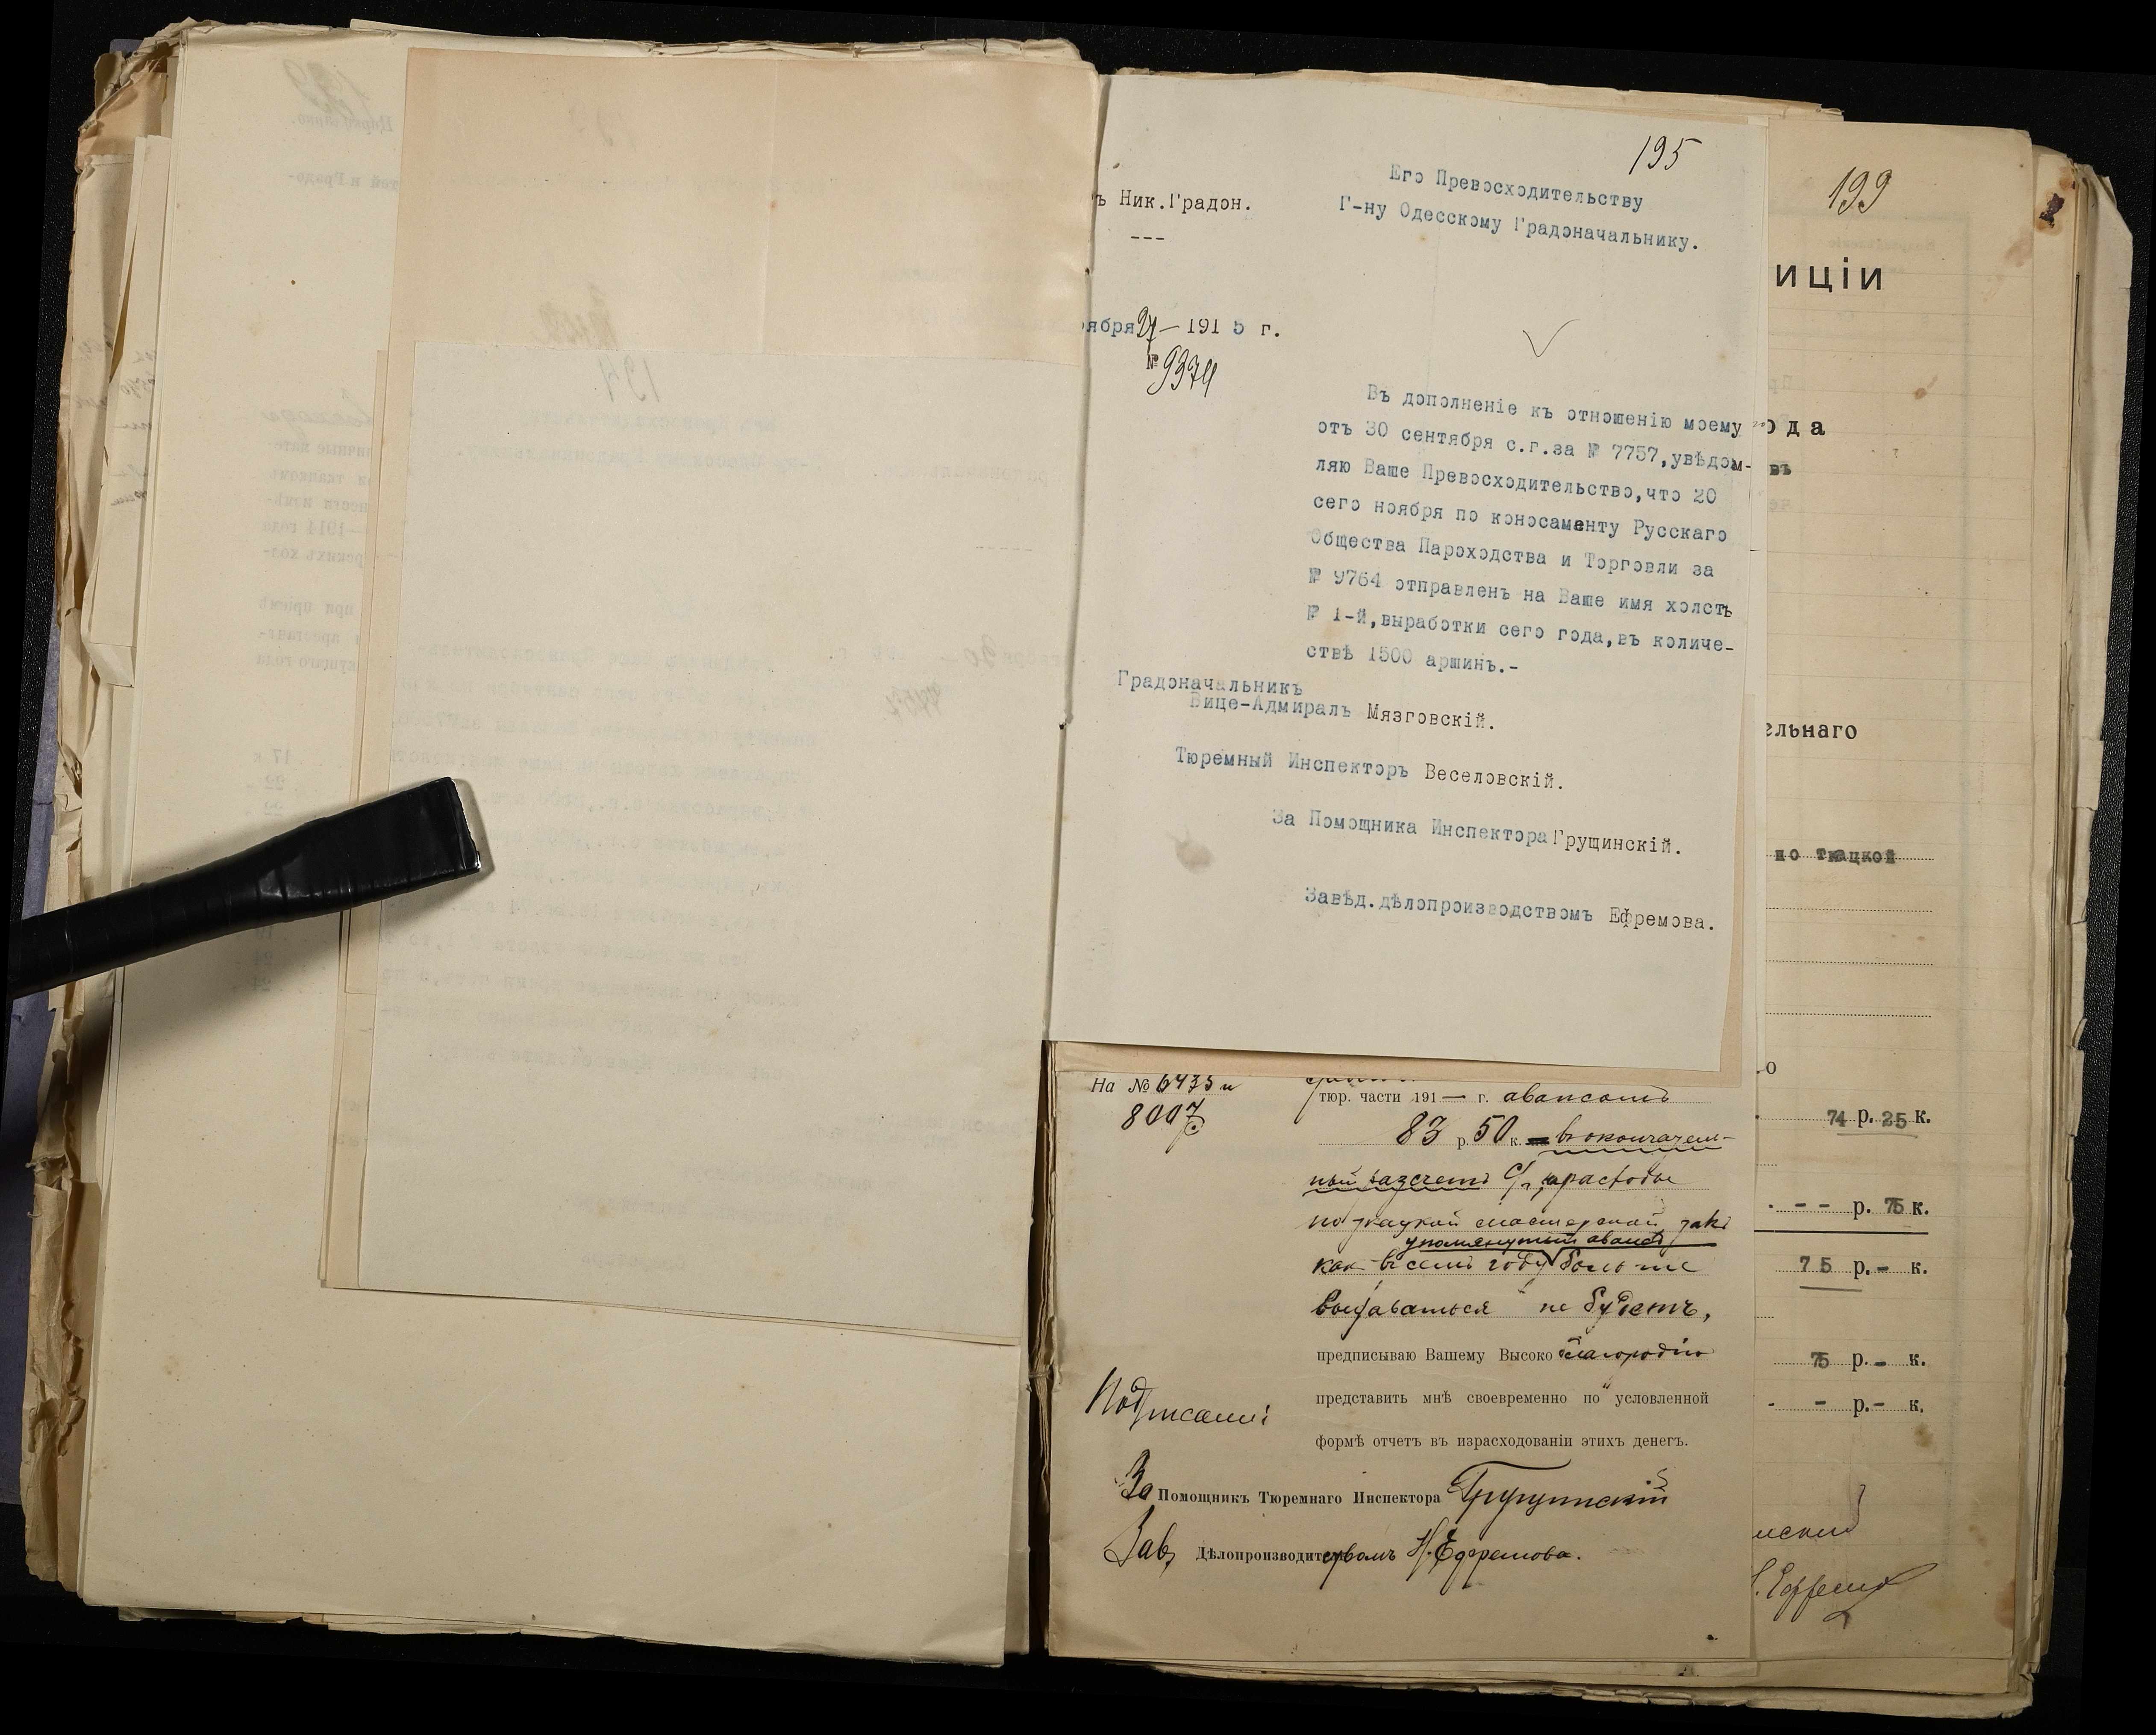 195
Его Превосходительству
Г-ну Одесскому Градоначальнику.
ъ Ник.Градон.
---
оября 27 — 1915 г.
№ 9374
Въ дополненіе къ отношенію моему
отъ 30 сентября с.г.за № 7757,увѣдом-
ляю Ваше Превосходительство,что 20
сего ноября по коносаменту Русскаго
Общества Пароходства и Торговли за
№ 9764 отправленъ на Ваше имя холстъ
№ 1-й,выработки сего года,въ количе-
ствѣ 1500 аршинъ.-
Градоначальникъ
Вице-Адмиралъ Мязговскій.
Тюремный Инспекторъ Веселовскій.
За Помощника Инспектора Грущинскій.
Завѣд.дѣлопроизводствомъ Ефремова.
На № 6435 и
8007
тюр. части 191— г. авансомъ
83 р. 50 к. — въ окончатель-
ный разсчетъ
по ткацкой мастерской, такъ
упомянутый авансъ
какъ въ семъ году больше
выдаваться не будетъ,
предписываю Вашему Высокоблагородію
представить мнѣ своевременно по условленной
формѣ отчетъ въ израсходованіи этихъ денегъ.
Подписали:
За Помощникъ Тюремнаго Инспектора Грущинскій
Зав. Дѣлопроизводствомъ Н. Ефремова.
199
иціи
ода
въ
ельнаго
по ткацкой
о
74 р. 25 к.
- - р. 75 к.
75 р. - к.
75 р. - к.
- р. - к.